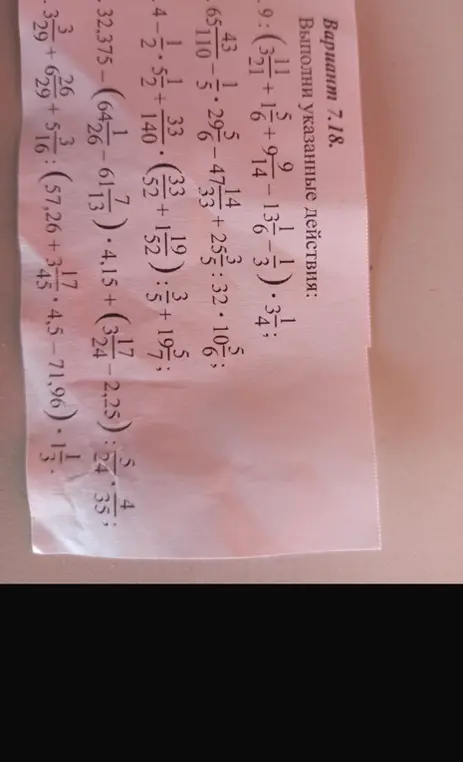 Вариант 7.18.
Выполни указанные действия:
. 9 : (3 11/21 + 1 5/6 + 9 9/14 − 13 1/6 − 1/3) · 3 1/4;
. 65 43/110 − 1/5 · 29 5/6 − 47 14/33 + 25 3/5 : 32 · 10 5/6;
. 4 − 1/2 · 5 1/2 + 33/140 · (33/52 + 1 19/52) : 3/5 + 19 5/7;
. 32,375 − (64 1/26 − 61 7/13) · 4,15 + (3 17/24 − 2,25) : 5/24 · 4/35;
. 3 3/29 + 6 26/29 + 5 3/16 : (57,26 + 3 17/45 · 4,5 − 71,96) · 1 1/3.